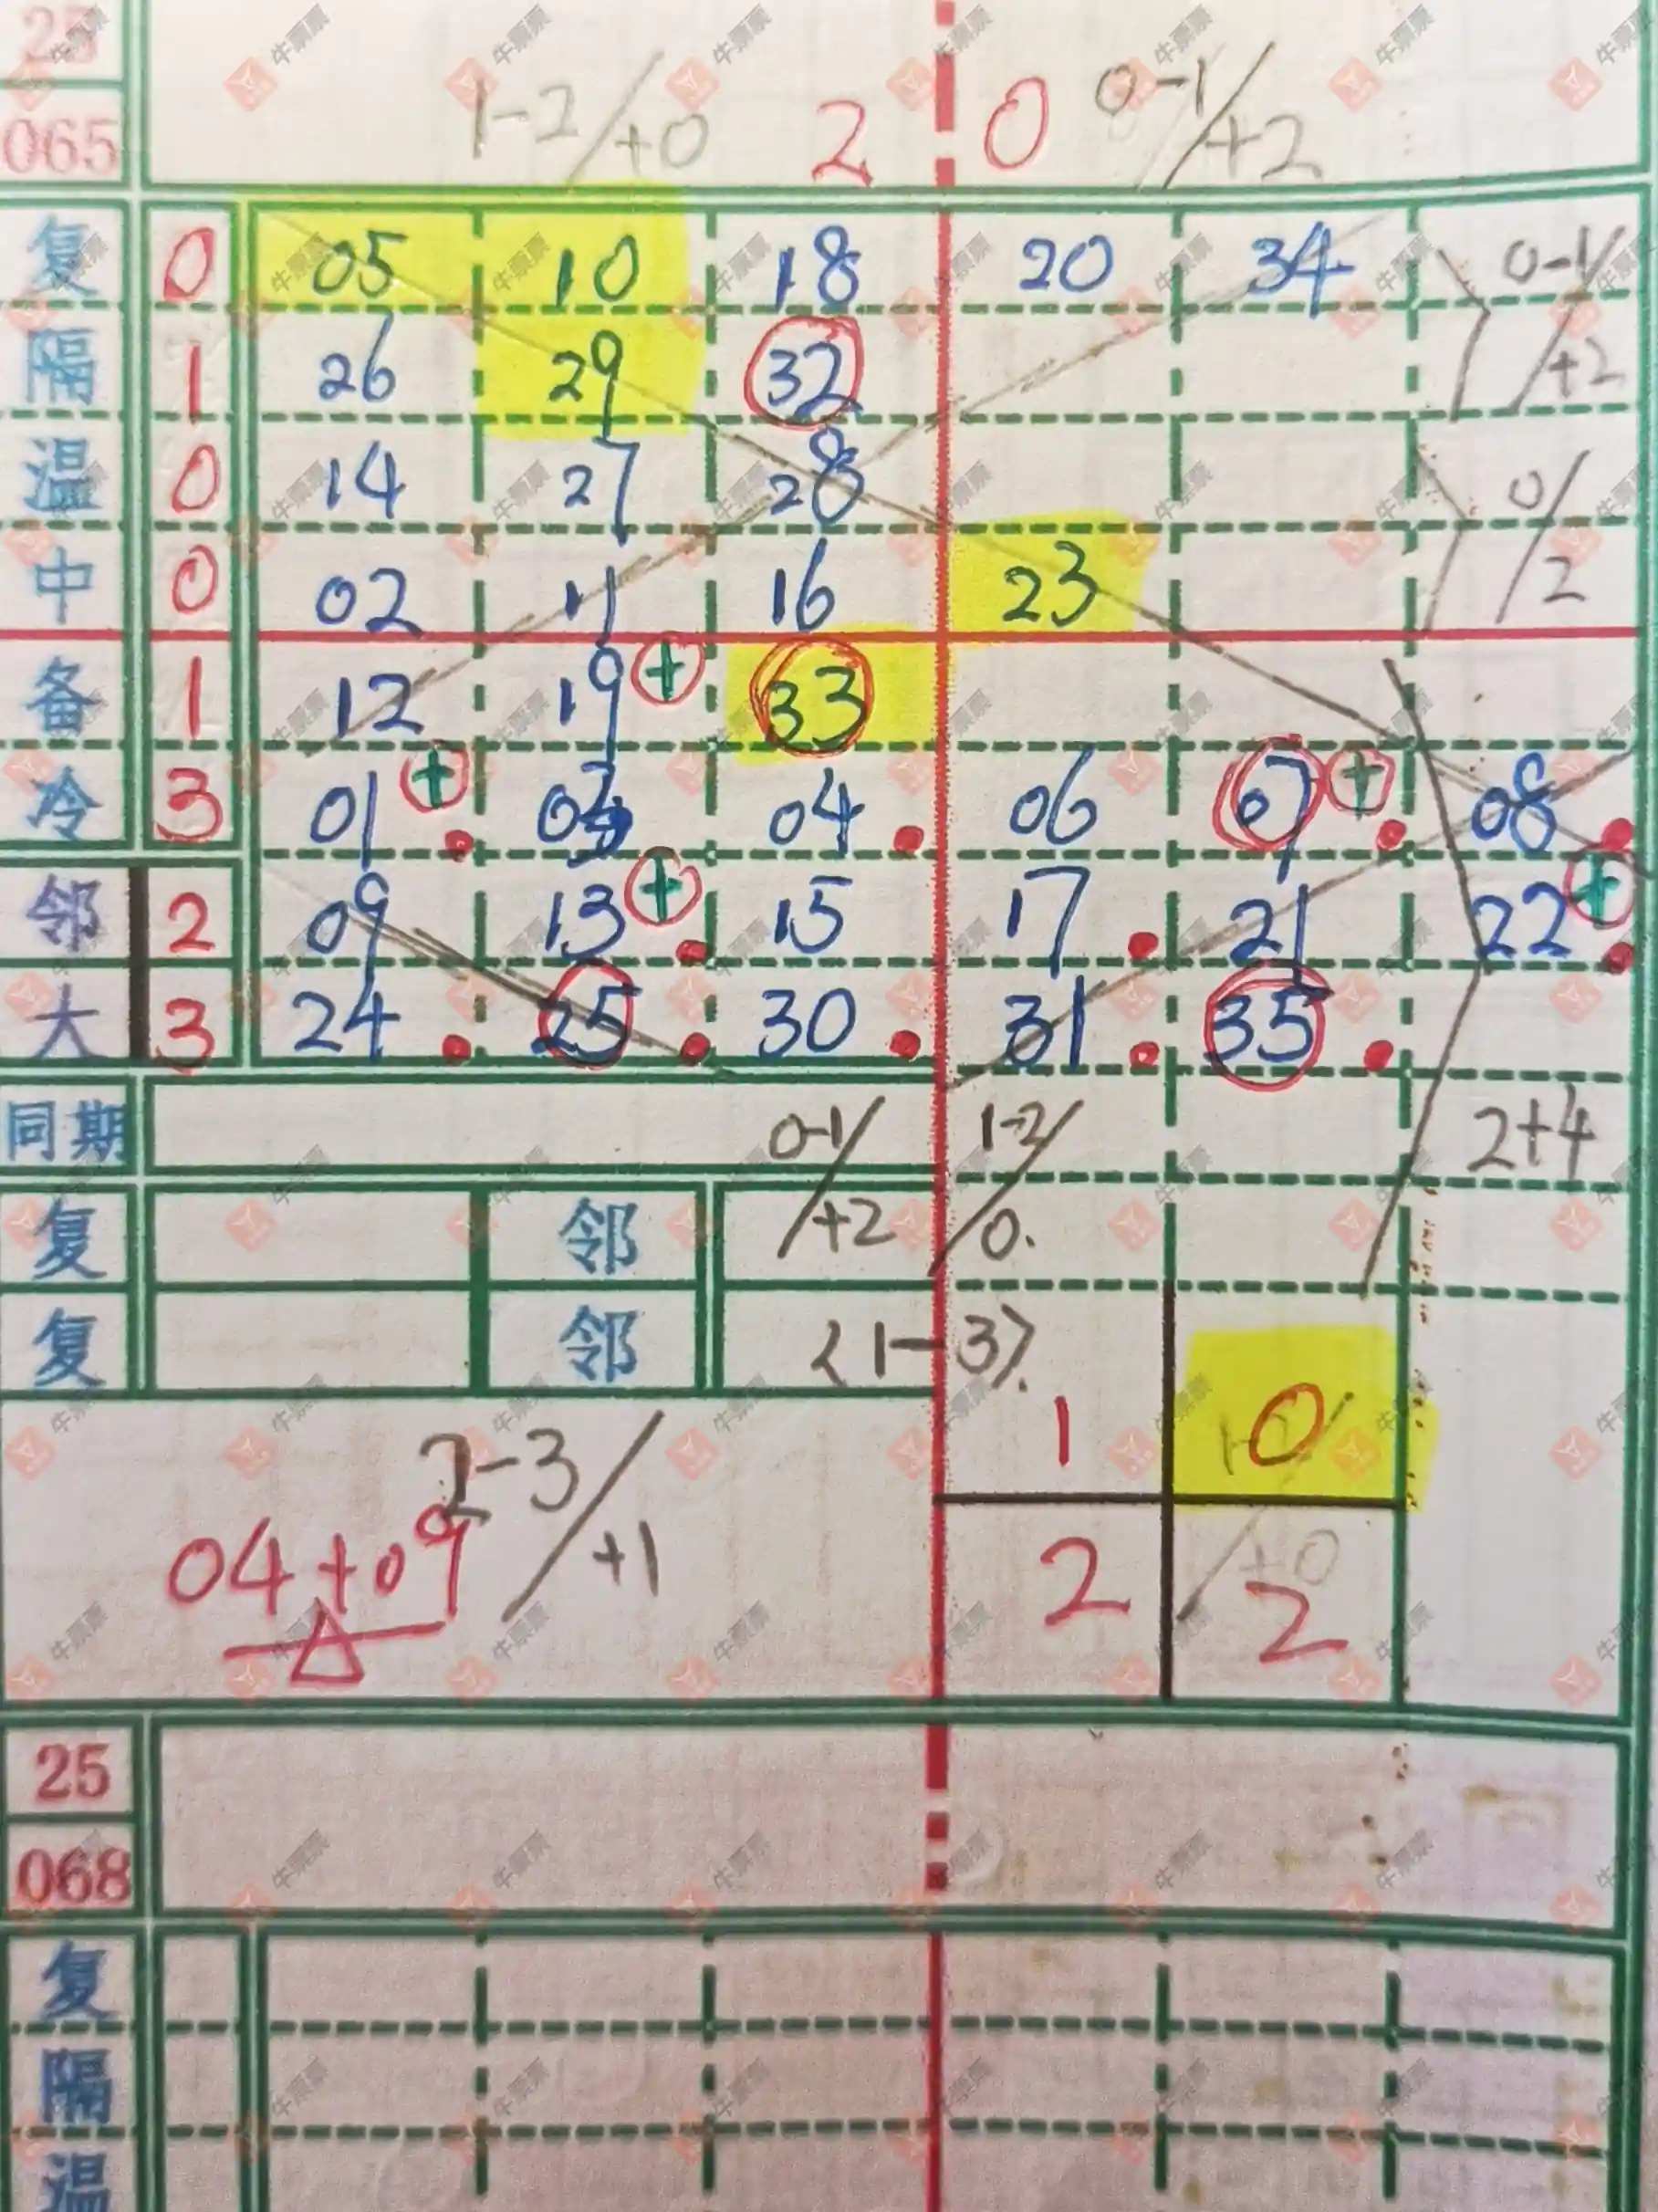 25
065 1-2/+0 2 0 0-1/+2
复 0 05 10 18 20 34 0-1/+2
隔 1 26 29 32
温 0 14 27 28 0/2
中 0 02 11 16 23
备 1 12 19 + 33
冷 3 01 + 03 04 06 07 + 08
邻 2 09 13 + 15 17 21 22 +
大 3 24 25 30 31 35
同期 0-1/+2 1-2/0. 2+4
复 邻
复 邻 <1-3>.
1 0
2-3/+1
04+09 2 /+0 2
25
068
复
隔
温
牛票票